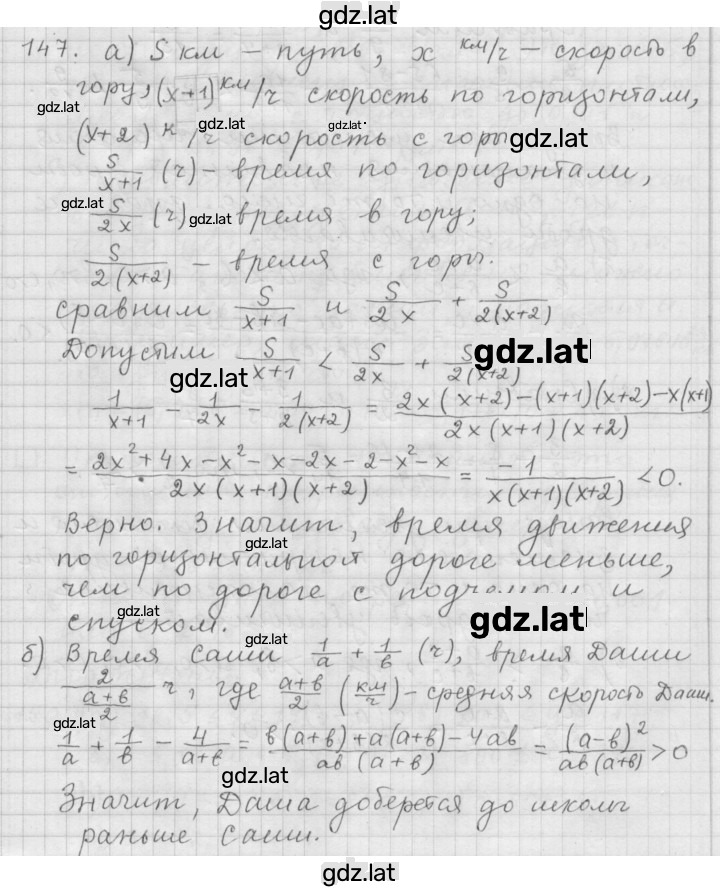 gdz.lat
147. а) S км – путь, x км/ч – скорость в
гору, (x+1) км/ч скорость по горизонтали,
gdz.lat
(x+2) к /ч скорость с горы
gdz.lat gdz.lat gdz.lat
S/(x+1) (ч) – время по горизонтали,
gdz.lat S/(2x) (ч) gdz.lat время в гору;
S/(2(x+2)) – время с горы.
сравним S/(x+1) и S/(2x) + S/(2(x+2))
Допустим S/(x+1) < S/(2x) + S/(2(x+2))
gdz.lat gdz.lat
1/(x+1) – 1/(2x) – 1/(2(x+2)) = (2x(x+2)–(x+1)(x+2)–x(x+1))/(2x(x+1)(x+2))
= (2x²+4x–x²–x–2x–2–x²–x)/(2x(x+1)(x+2)) = –1/(x(x+1)(x+2)) < 0.
Верно. Значит, время движения
gdz.lat
по горизонтальной дороге меньше,
чем по дороге с и
gdz.lat gdz.lat
спуском.
gdz.lat
б) Время Саши 1/a + 1/b (ч), время Даши
2/((a+b)/2) ч, где (a+b)/2 (км/ч) – средняя скорость Даши.
gdz.lat
1/a + 1/b – 4/(a+b) = (b(a+b)+a(a+b)–4ab)/(ab(a+b)) = (a–b)²/(ab(a+b)) > 0
gdz.lat
Значит, Даша доберется до школы
раньше Саши.
gdz.lat